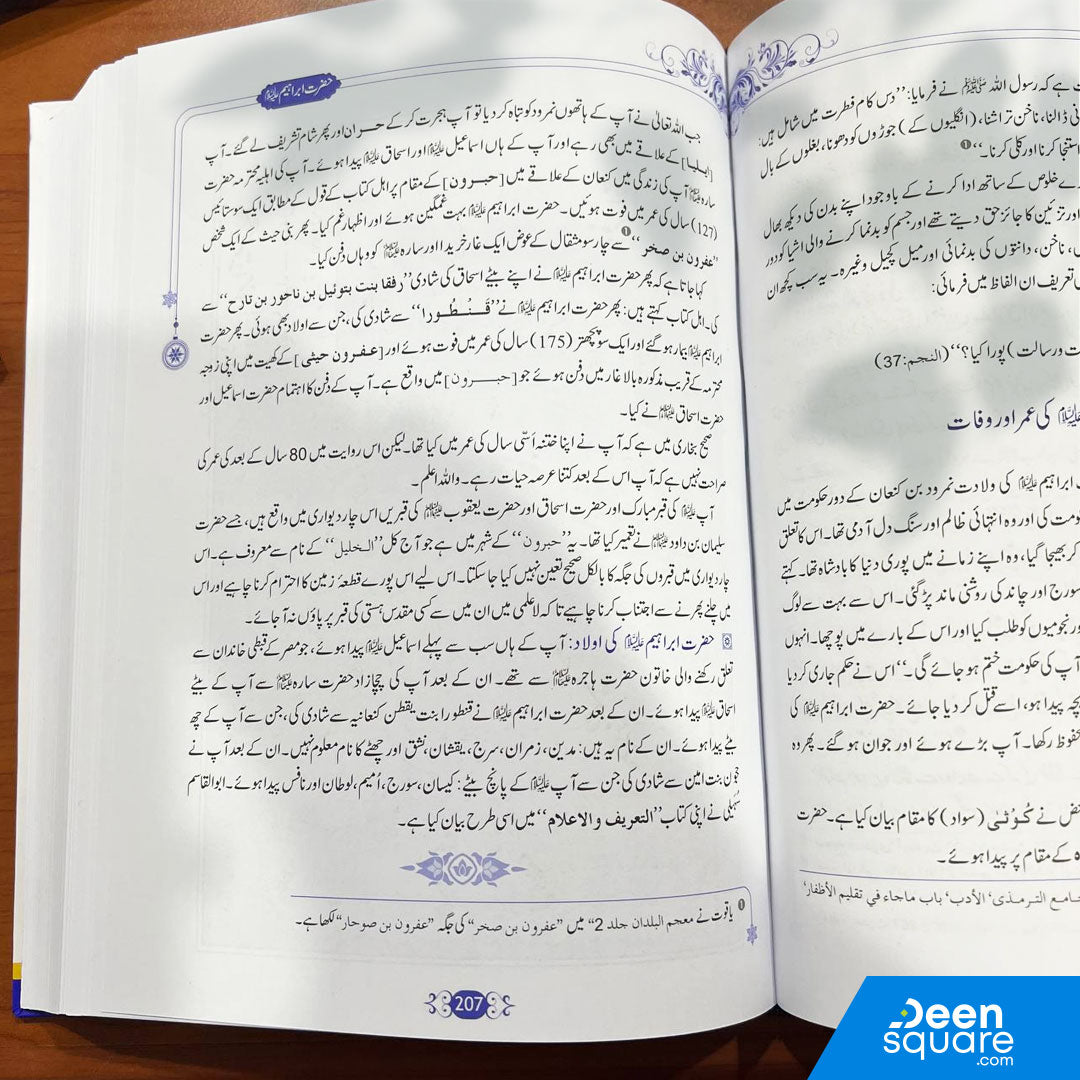 حضرت ابراہیم علیہ السلام
جب اللہ تعالیٰ نے آپ کے ہاتھوں نمرود کو تباہ کر دیا تو آپ ہجرت کر کے حران اور پھر شام تشریف لے گئے۔ آپ
[ایلیا] کے علاقے میں بھی رہے اور آپ کے ہاں اسماعیل علیہ السلام اور اسحاق علیہ السلام پیدا ہوئے۔ آپ کی اہلیہ محترمہ حضرت
سارہ علیہا السلام آپ کی زندگی میں کنعان کے علاقے میں [حبرون] کے مقام پر اہل کتاب کے قول کے مطابق ایک سو ستائیس
(127) سال کی عمر میں فوت ہوئیں۔ حضرت ابراہیم علیہ السلام بہت غمگین ہوئے اور اظہار غم کیا۔ پھر بنی حیث کے ایک شخص
”عفرون بن صخر“❶ سے چار سو مثقال کے عوض ایک غار خریدا اور سارہ علیہا السلام کو وہاں دفن کیا۔
کہا جاتا ہے کہ پھر حضرت ابراہیم علیہ السلام نے اپنے بیٹے اسحاق کی شادی ”رفقا بنت بتوئیل بن ناحور بن تارح“ سے
کی۔ اہل کتاب کہتے ہیں: پھر حضرت ابراہیم علیہ السلام نے ”قنطورا“ سے شادی کی، جن سے اولاد بھی ہوئی۔ پھر حضرت
ابراہیم علیہ السلام بیمار ہو گئے اور ایک سو پچھتر (175) سال کی عمر میں فوت ہوئے اور [عفرون حیثی] کے کھیت میں اپنی زوجہ
محترمہ کے قریب مذکورہ بالا غار میں دفن ہوئے جو [حبرون] میں واقع ہے۔ آپ کے دفن کا اہتمام حضرت اسماعیل اور
حضرت اسحاق علیہما السلام نے کیا۔
صحیح بخاری میں ہے کہ آپ نے اپنا ختنہ اَسّی سال کی عمر میں کیا تھا۔ لیکن اس روایت میں 80 سال کے بعد کی عمر کی
صراحت نہیں ہے کہ آپ اس کے بعد کتنا عرصہ حیات رہے۔ واللہ اعلم۔
آپ علیہ السلام کی قبر مبارک اور حضرت اسحاق اور حضرت یعقوب علیہم السلام کی قبریں اس چار دیواری میں واقع ہیں، جسے حضرت
سلیمان بن داود علیہما السلام نے تعمیر کیا تھا۔ یہ ”حبرون“ کے شہر میں ہے جو آج کل ”الخلیل“ کے نام سے معروف ہے۔ اس
چار دیواری میں قبروں کی جگہ کا بالکل صحیح تعین نہیں کیا جا سکتا۔ اس لیے اس پورے قطعۂ زمین کا احترام کرنا چاہیے اور اس
میں چلنے پھرنے سے اجتناب کرنا چاہیے تاکہ لاعلمی میں ان میں سے کسی مقدس ہستی کی قبر پر پاؤں نہ آ جائے۔
حضرت ابراہیم علیہ السلام کی اولاد: آپ کے ہاں سب سے پہلے اسماعیل علیہ السلام پیدا ہوئے، جو مصر کے قبطی خاندان سے
تعلق رکھنے والی خاتون حضرت ہاجرہ علیہا السلام سے تھے۔ ان کے بعد آپ کی چچازاد حضرت سارہ علیہا السلام سے آپ کے بیٹے
اسحاق علیہ السلام پیدا ہوئے۔ ان کے بعد حضرت ابراہیم علیہ السلام نے قنطورا بنت یقطن کنعانیہ سے شادی کی، جن سے آپ کے چھ
بیٹے پیدا ہوئے۔ ان کے نام یہ ہیں: مدین، زمران، سرج، یقشان، نشق اور چھٹے کا نام معلوم نہیں۔ ان کے بعد آپ نے
حجون بنت امین سے شادی کی جن سے آپ علیہ السلام کے پانچ بیٹے: کیسان، سورج، اُمیم، لوطان اور نافس پیدا ہوئے۔ ابوالقاسم
سُہیلی نے اپنی کتاب ”التعریف والاعلام“ میں اسی طرح بیان کیا ہے۔
❶ یاقوت نے معجم البلدان جلد 2“ میں ”عفرون بن صخر“ کی جگہ ”عفرون بن صوحار“ لکھا ہے۔
207
ہے کہ رسول اللہ ﷺ نے فرمایا: ”دس کام فطرت میں شامل ہیں:
ڈالنا، ناخن تراشنا، (انگلیوں کے) جوڑوں کو دھونا، بغلوں کے بال
استنجا کرنا اور کلی کرنا۔“❶
خلوص کے ساتھ ادا کرنے کے باوجود اپنے بدن کی دیکھ بھال
اور تزئین کا جائز حق دیتے تھے اور جسم کو بدنما کرنے والی اشیا کو دور
ناخن، دانتوں کی بدنمائی اور میل کچیل وغیرہ۔ یہ سب کچھ ان
تعریف ان الفاظ میں فرمائی:
ت و رسالت) پورا کیا؟“ (النجم: 37)
علیہ السلام کی عمر اور وفات
ابراہیم علیہ السلام کی ولادت نمرود بن کنعان کے دور حکومت میں
کی اور وہ انتہائی ظالم اور سنگ دل آدمی تھا۔ اس کا تعلق
کر بھیجا گیا، وہ اپنے زمانے میں پوری دنیا کا بادشاہ تھا۔ کہتے
سورج اور چاند کی روشنی ماند پڑ گئی۔ اس سے بہت سے لوگ
نجومیوں کو طلب کیا اور اس کے بارے میں پوچھا۔ انہوں
آپ کی حکومت ختم ہو جائے گی۔“ اس نے حکم جاری کر دیا
بچہ پیدا ہو، اسے قتل کر دیا جائے۔ حضرت ابراہیم علیہ السلام کی
محفوظ رکھا۔ آپ بڑے ہوئے اور جوان ہو گئے۔ پھر وہ
نے کُوثٰی (سواد) کا مقام بیان کیا ہے۔ حضرت
کے مقام پر پیدا ہوئے۔
جامع الترمذی، الأدب، باب ماجاء في تقليم الأظفار،
Deen
square
.com